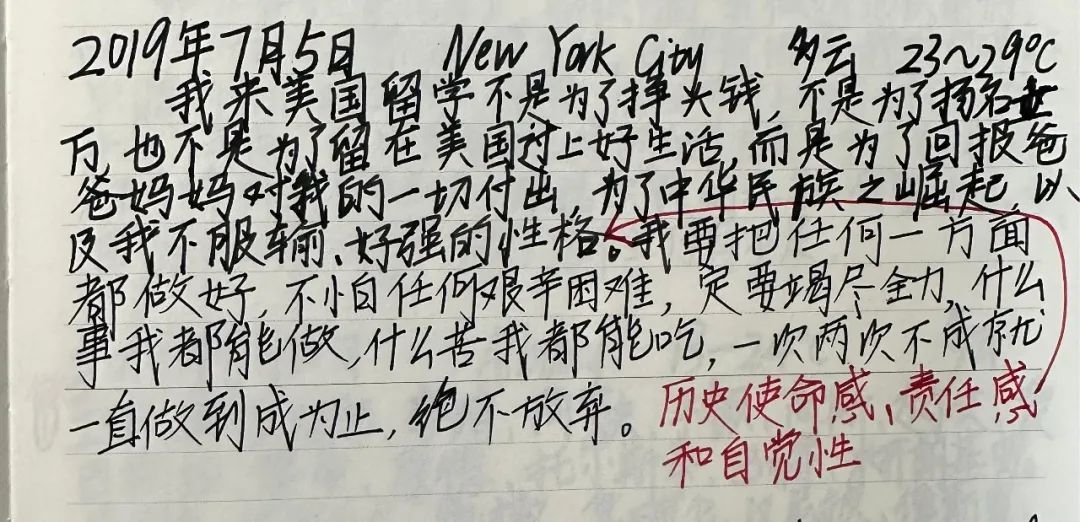 2019年7月5日 New York City 多云 23~29℃
我来美国留学不是为了挣大钱,不是为了扬名立
万,也不是为了留在美国过上好生活,而是为了回报爸
爸妈妈对我的一切付出,为了中华民族之崛起,以
及我不服输、好强的性格。我要把任何一方面
都做好,不怕任何艰辛困难,定要竭尽全力,什么
事我都能做,什么苦我都能吃,一次两次不成就
一直做到成为止,绝不放弃。
历史使命感、责任感
和自觉性